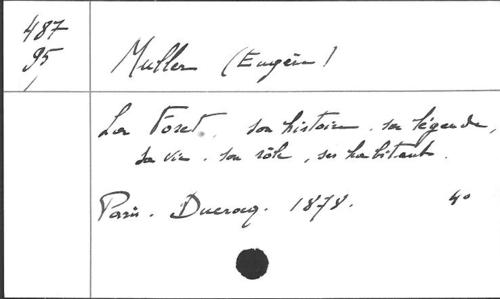 487
95
Muller (Eugène)
La Forêt, son histoire, sa légende,
sa vie, son rôle, ses habitants.
Paris. Ducrocq. 1878. 4°